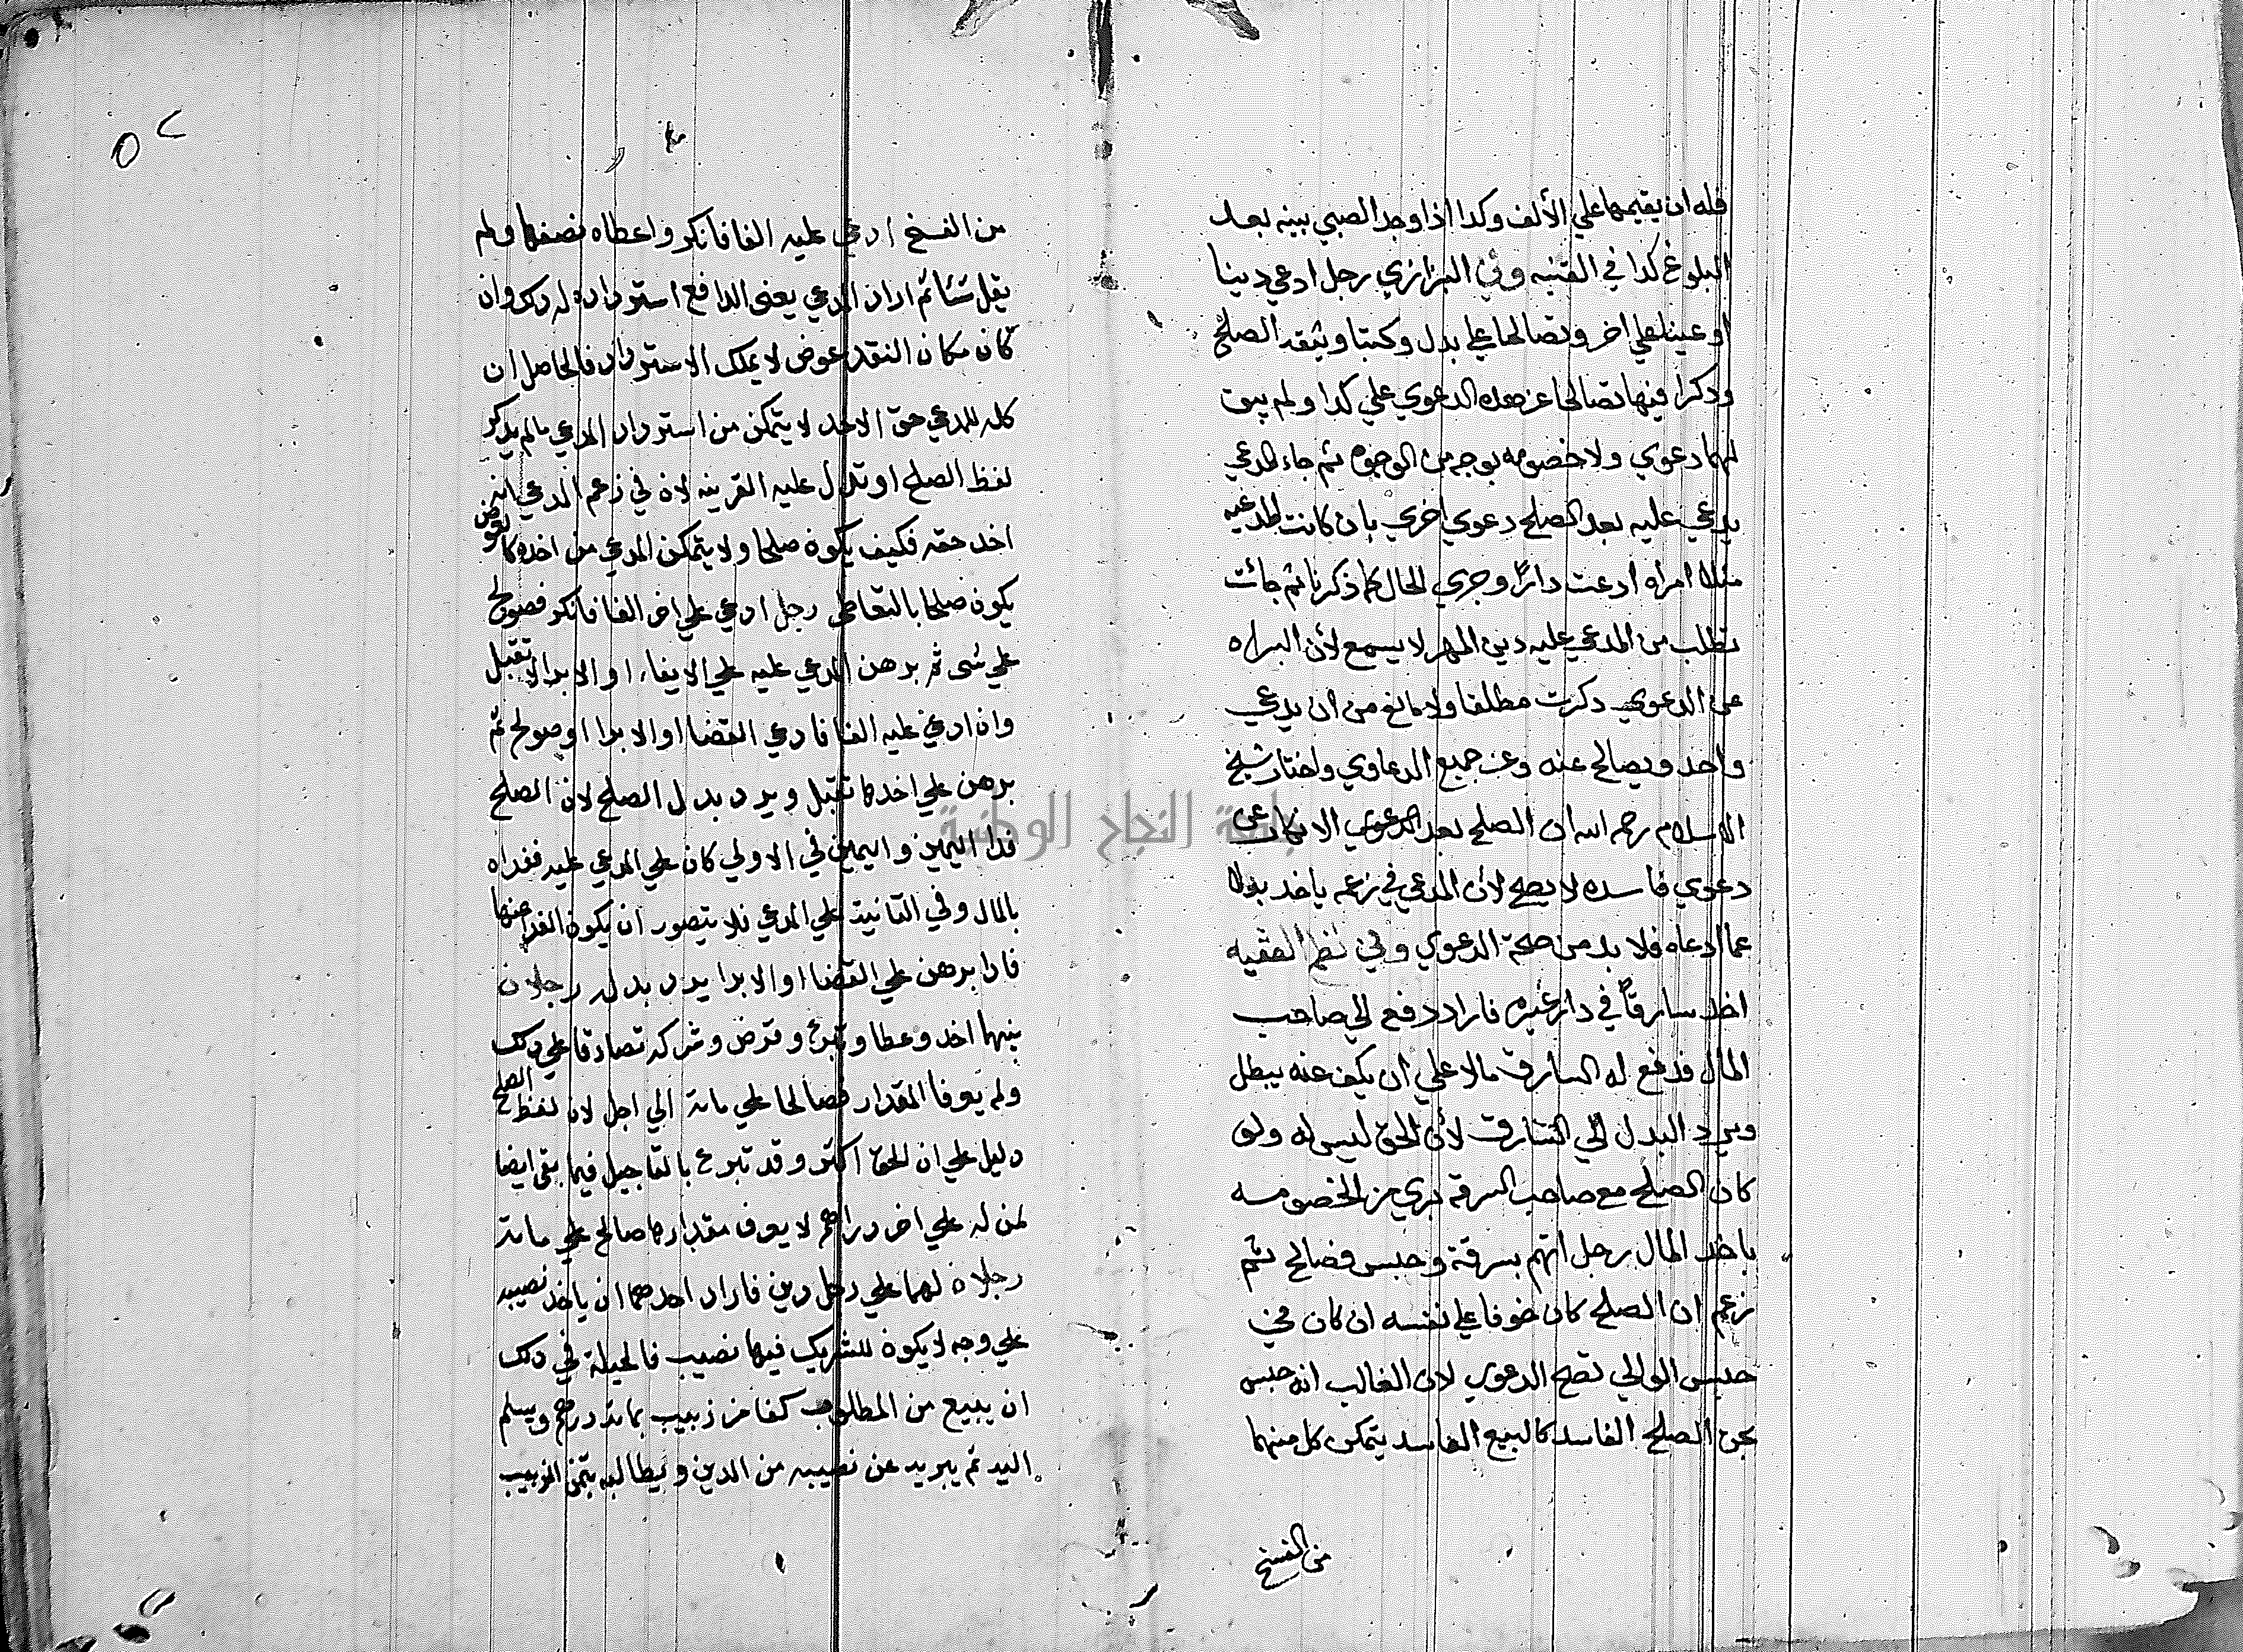 فله ان يقيمها علي الألف وكدا اذا وجد الصبي بينه بعد
البلوغ كدا في القنيه وفي البزازي رجل ادعي دينا
او عينا علي اخر وتصالحا علي بدل وكتبا وثيقه الصلح
ودكرا فيها تصالحا عن هده الدعوي علي كدا ولم يبق
لهما دعوي ولا خصومه بوجه من الوجوه ثم جاء المدعي
يدعي عليه بعد الصلح دعوي اخري بان كانت المدعيه
مثلا امراه ادعت دارًا وجري الحال كما ذكرنا ثم جائت
تطلب من المدعي عليه دين المهر لا يسمع لأن البراه
عن الدعوي دكرت مطلقا ولا مانع من ان يدعي
واحد ويصالح عنه وعن جميع الدعاوي واختار شيخ
الاسلام رحمه الله ان الصلح بعد الدعوي الانهار عن
دعوي فاسده لا يصح لأن المدعي في زعمه ياخد بدلا
عما ادعاه فلا بد من صحة الدعوي وفي نظم الفقيه
اخد سارقاً في دار غيره فاراد دفعه الي صاحب
المال فدفع له السارق مالا علي ان يكف عنه يبطل
ويرد البدل الي السارق لأن الحق ليس له ولو
كان الصلح مع صاحب السرقه بري من الخصومه
باخد المال رجل اتهم بسرقة وحبس فصالح ثم
زعم ان الصلح كان خوفا علي نفسه ان كان في
حبس الوالي تصح الدعوي لان الغالب انه حبس
الصلح الفاسد كالبيع الفاسد يتمكن كل منهما
من الفسخ
٥٢
من الفسخ ادعي عليه الفا فانكر واعطاه نصفها ولم
يقل شئا ثم اراد المدعي يعني الدافع استرداده له دكر وان
كان مكان النقد عوض لا يملك الاسترداد فالحاصل ان
كله للمدعي حق الاخد لا يتمكن من استرداد المدعي ما لم يدكر
لفظ الصلح او تدل عليه القرينه لان في زعم المدعي انه
اخد حقه فكيف يكون صلحا ولا يتمكن المدعي من اخدها بعوض
يكون صلحا بالتعاطي رجل ادعي علي اخر الفا فانكر فصولح
علي شي ثم برهن المدعي عليه علي الايفاء او الابرا لا تقبل
وان ادعي عليه الفا فادعي القضا او الابرا او صولح ثم
برهن علي احدها تقبل ويرد بدل الصلح لان الصلح
فدا اليمين واليمين في الاولي كان علي المدعي عليه ففداه
بالمال وفي الثانية علي المدعي فلا يتصور ان يكون الفدا عنها
فادا برهن علي القضا او الابرا يرد بدله رجلان
بينهما اخد وعطا وتبرع وقرض وشركه تصادقا علي دلك
ولم يعرفا المقدار فصالحا علي مائة الي اجل لان لفظ الصلح
دليل علي ان الحق اكثر وقد تبرع بالتاجيل فيما بقي ايضا
لمن له علي اخر دراهم لا يعرف مقدارها صالح علي مائة
رجلان لهما علي رجل دين فاراد احدهما ان ياخد نصيبه
علي وجه لا يكون للشريك فيها نصيب فالحيلة في دلك
ان يبيع من المطلوب كفا من زبيب بمائة درهم ويسلم
اليه ثم يبريه عن نصيبه من الدين ويطالبه بثمن الزبيب
جامعة النجاح الوطنية